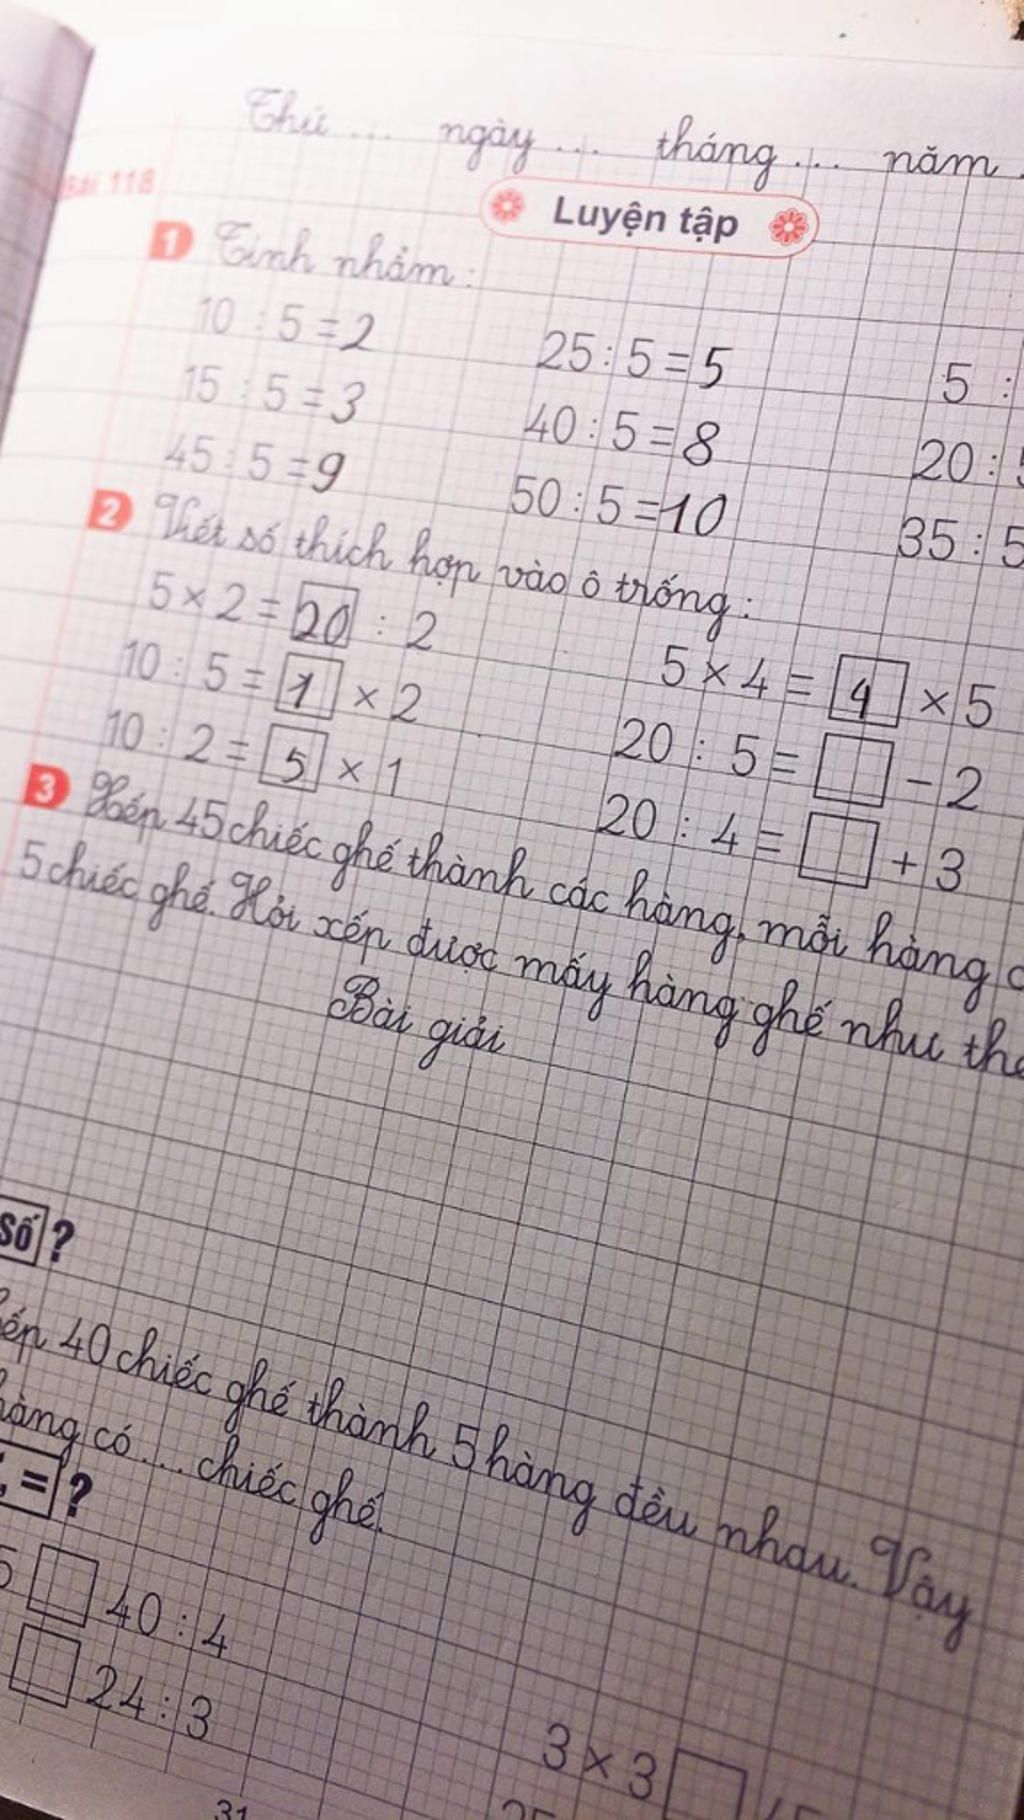 Thứ ... ngày ... tháng ... năm
Bài 118
Luyện tập
1 Tính nhẩm :
10 : 5 = 2 25 : 5 = 5 5 :
15 : 5 = 3 40 : 5 = 8 20 :
45 : 5 = 9 50 : 5 = 10 35 : 5
2 Viết số thích hợp vào ô trống :
5 × 2 = 20 : 2 5 × 4 = 4 × 5
10 : 5 = 1 × 2 20 : 5 = □ - 2
10 : 2 = 5 × 1 20 : 4 = □ + 3
3 Xếp 45 chiếc ghế thành các hàng, mỗi hàng
5 chiếc ghế. Hỏi xếp được mấy hàng ghế như
Bài giải
Số ?
40 chiếc ghế thành 5 hàng đều nhau. Vậy
hàng có ... chiếc ghế.
, = ?
5 □ 40 : 4
□ 24 : 3
3 × 3 □
31